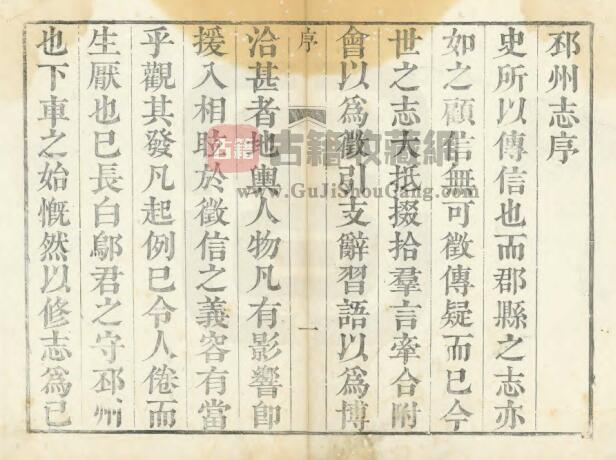 邳州志序
史所以傳信也而郡縣之志亦
如之顧信無可徵傳疑而已今
世之志大抵掇拾羣言牽合附
會以爲徵引支辭習語以爲博
序 一
洽甚者地輿人物凡有影響卽
援入相眩於徵信之義容有當
乎觀其發凡起例已令人倦而
生厭也已長白鄔君之守邳州
也下車之始慨然以修志爲已
古籍 古籍收藏網
www.GuJiShouGang.com